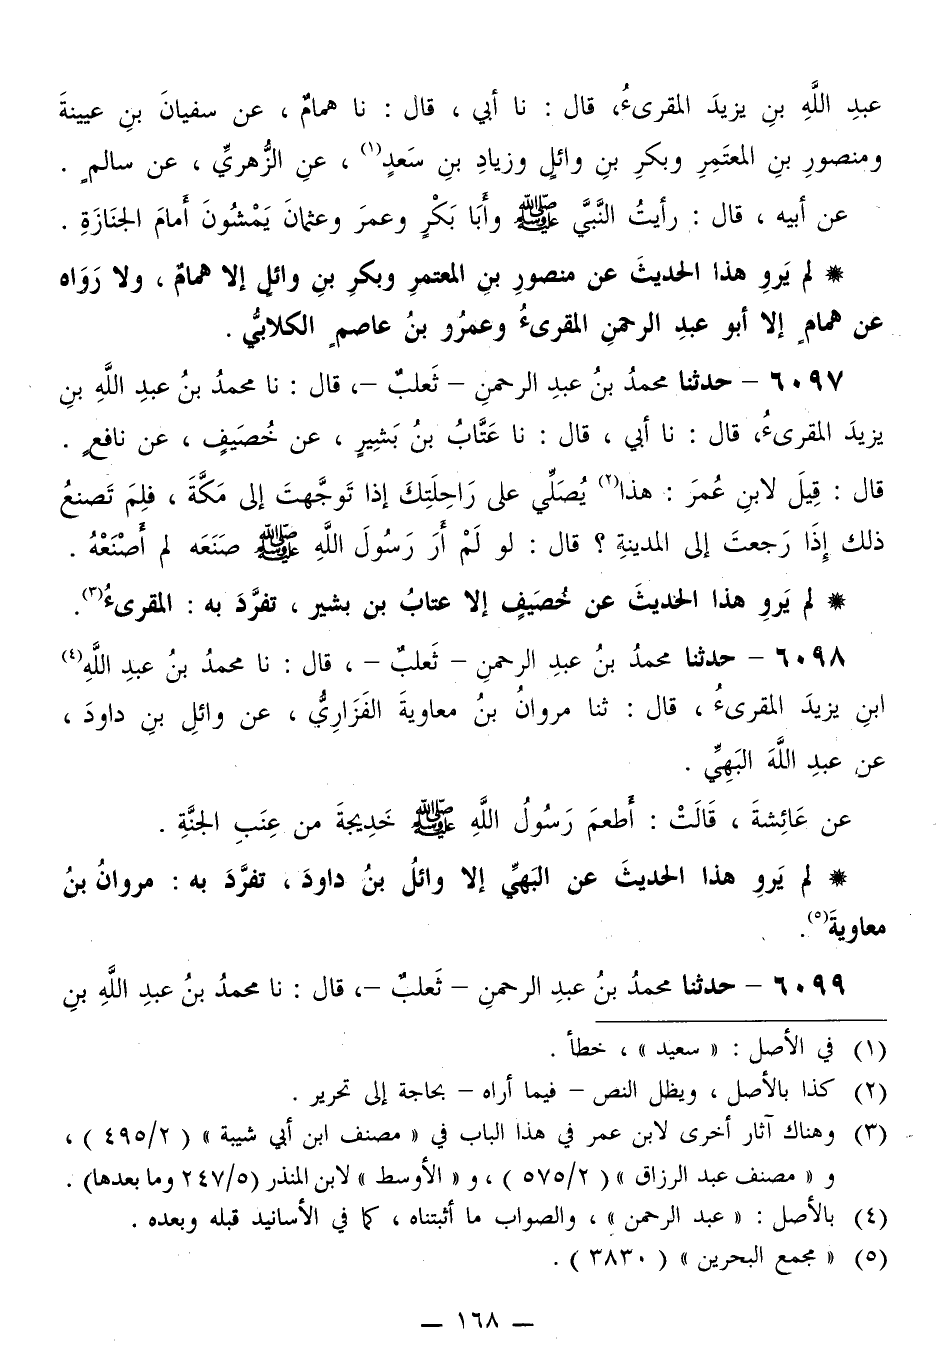 عبدِ اللَّهِ بنِ يزيدَ المقرىءُ، قال : نا أبي ، قال : نا همامٌ ، عن سفيانَ بنِ عيينةَ
ومنصورِ بنِ المعتَمِرِ وبكرِ بنِ وائلٍ وزيادِ بنِ سَعدٍ(١) ، عنِ الزُّهريِّ ، عن سالمٍ .
عن أبيه ، قال : رأيتُ النَّبيَّ ﷺ وأَبَا بَكْرٍ وعمرَ وعثمانَ يَمْشُونَ أَمامَ الجنَازَةِ .
* لم يَروِ هذا الحديثَ عن منصورِ بنِ المعتمرِ وبكرِ بنِ وائلٍ إلا همامٌ ، ولا رَوَاه
عن همامٍ إلا أبو عبدِ الرحمنِ المقرىءُ وعمرُو بنُ عاصمٍ الكلابيُّ .
٦٠٩٧ – حدثنا محمدُ بنُ عبدِ الرحمنِ – ثَعلبٌ –، قال : نا محمدُ بنُ عبدِ اللَّهِ بنِ
يزيدَ المقرىءُ، قال : نا أبي ، قال : نا عَتَّابُ بنُ بَشِيرٍ ، عن خُصَيَفٍ ، عن نافعٍ .
قال : قِيلَ لابنِ عُمرَ : هذا(٢) يُصَلِّي على رَاحِلَتِكَ إذا تَوجَّهتَ إلى مَكَّةَ ، فلِمَ تَصنعُ
ذلك إِذَا رَجعتَ إلى المدينةِ ؟ قال : لو لَمْ أَرَ رَسُولَ اللَّهِ ﷺ صنَعَه لم أَصْنَعْهُ .
* لم يَروِ هذا الحديثَ عن خُصَيَفٍ إلا عتابُ بن بشير ، تفرَّدَ به : المقرىءُ(٣).
٦٠٩٨ – حدثنا محمدُ بنُ عبدِ الرحمنِ – ثَعلبٌ – ، قال : نا محمدُ بنُ عبدِ اللَّهِ(٤)
ابنِ يزيدَ المقرىءُ ، قال : ثنا مروانُ بنُ معاويةَ الفَزَاريُّ ، عن وائلِ بنِ داودَ ،
عن عبدِ اللَّهَ البَهِيِّ .
عن عَائِشةَ ، قَالَتْ : أَطعمَ رَسُولُ اللَّهِ ﷺ خَدِيجةَ من عِنَبِ الجنَّةِ .
* لم يَروِ هذا الحديثَ عن البَهيِّ إلا وائلُ بنُ داودَ ، تفرَّدَ به : مروانُ بنُ
معاويةَ(٥).
٦٠٩٩ – حدثنا محمدُ بنُ عبدِ الرحمنِ – ثَعلبٌ –، قال : نا محمدُ بنُ عبدِ اللَّهِ بنِ
(١) في الأصل : « سعيد » ، خطأ .
(٢) كذا بالأصل ، ويظل النص – فيما أراه – بحاجة إلى تحرير .
(٣) وهناك آثار أخرى لابن عمر في هذا الباب في « مصنف ابن أبي شيبة » ( ٤٩٥/٢ ) ،
و « مصنف عبد الرزاق » ( ٥٧٥/٢ ) ، و « الأوسط » لابن المنذر (٢٤٧/٥ وما بعدها) .
(٤) بالأصل : « عبد الرحمن » ، والصواب ما أثبتناه ، كما في الأسانيد قبله وبعده .
(٥) « مجمع البحرين » ( ٣٨٣٠ ) .
— ١٦٨ —